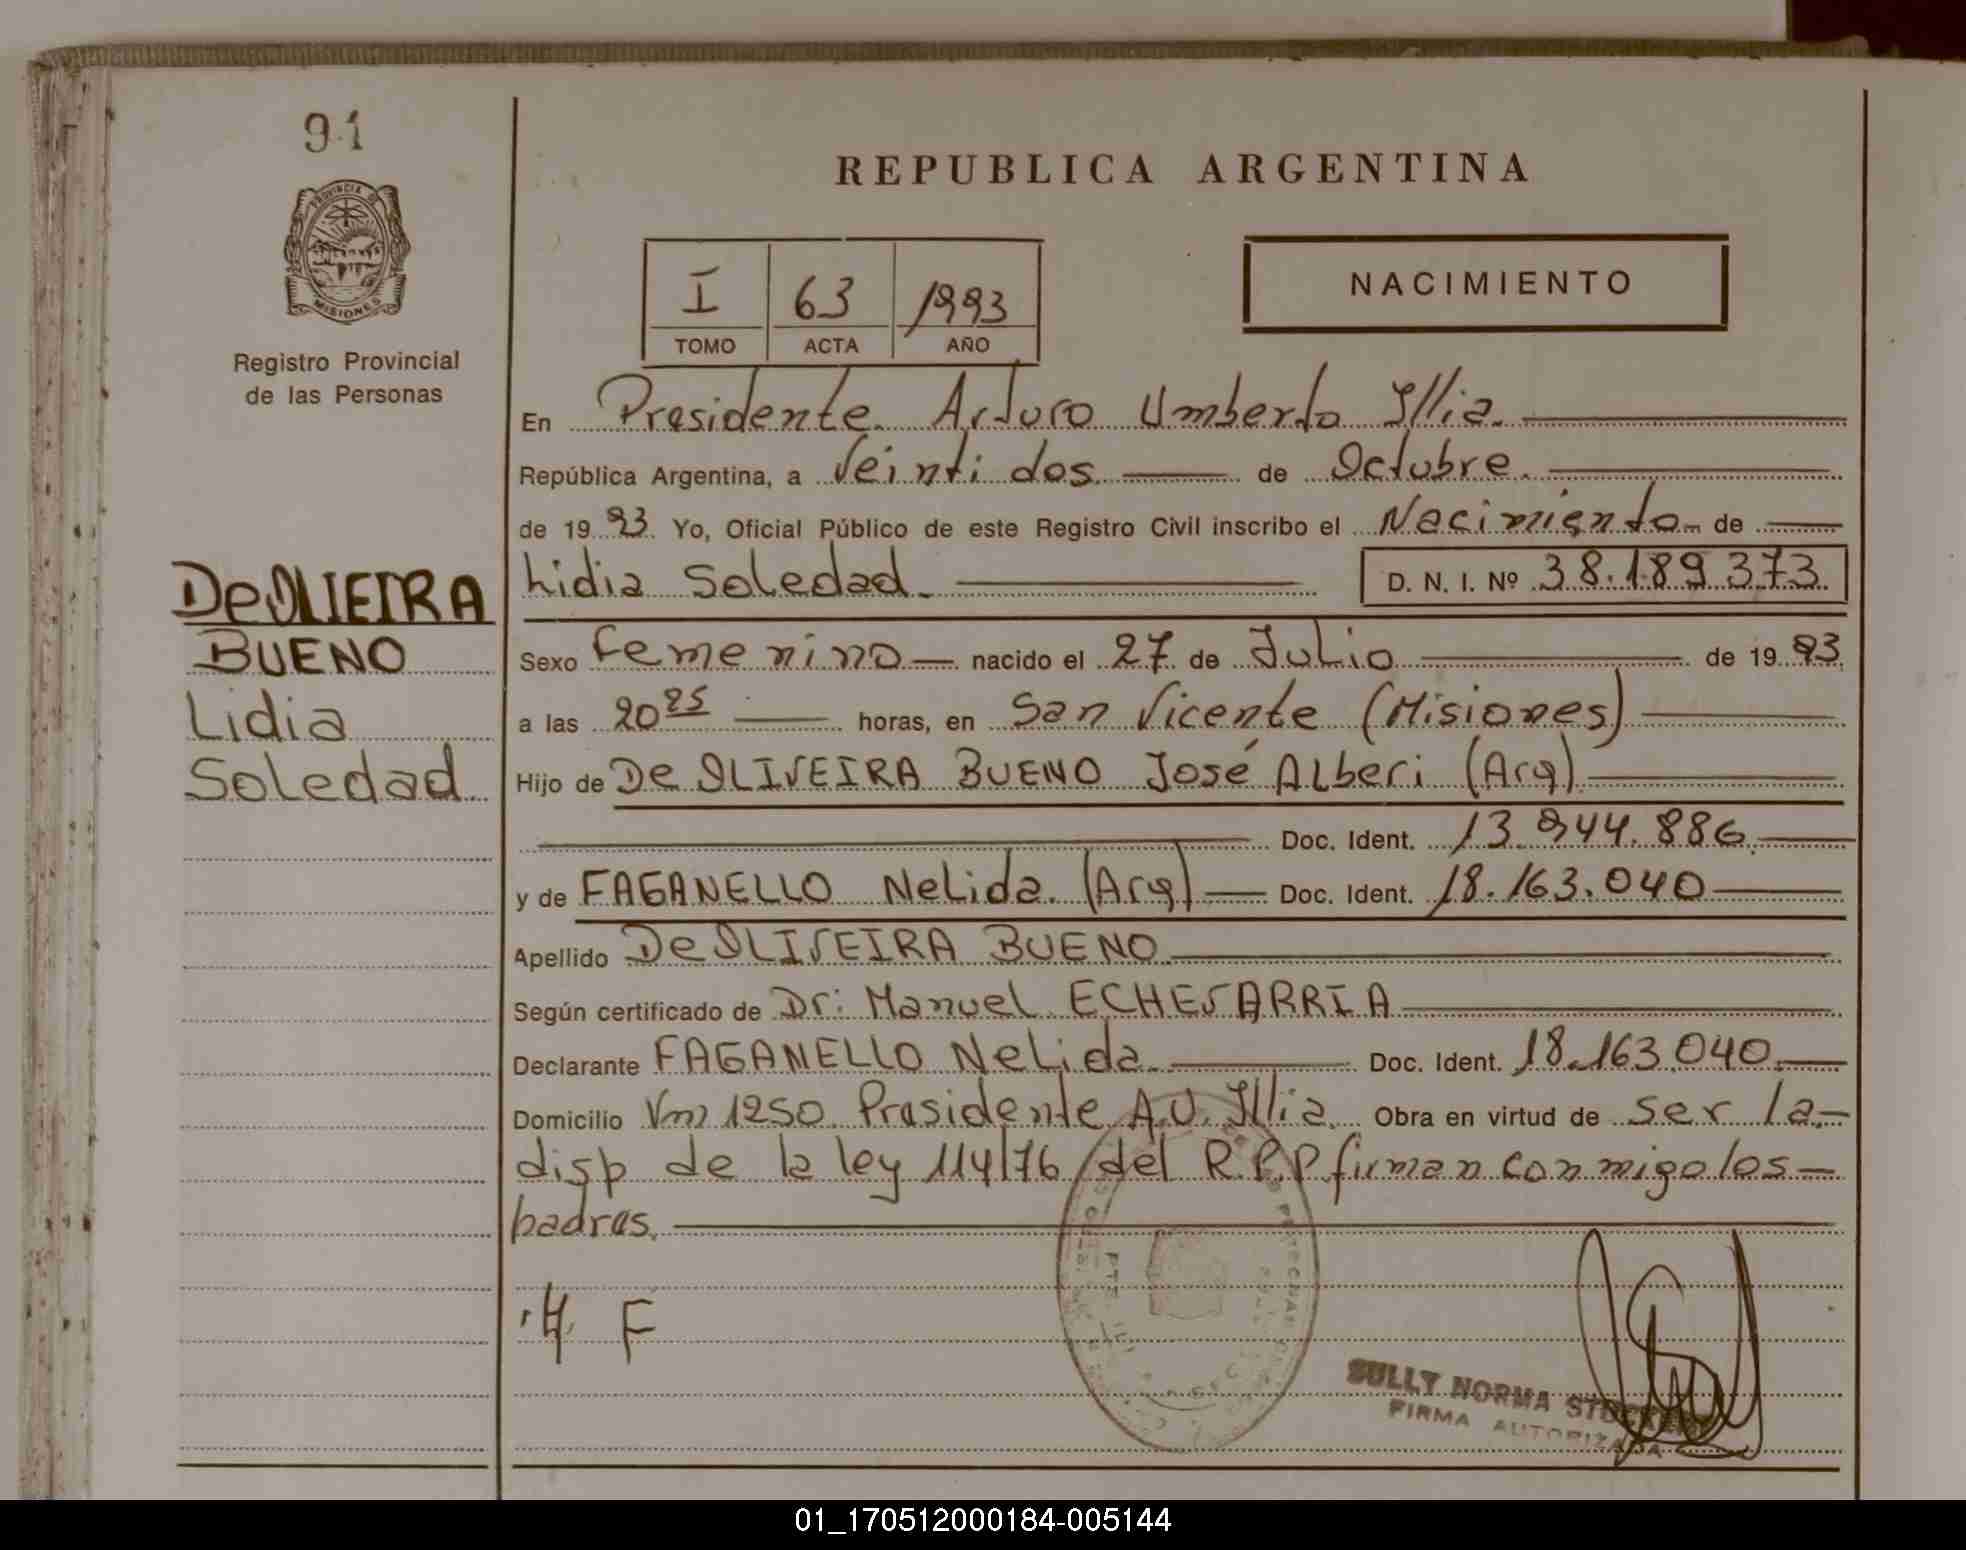 91
PROVINCIA DE
MISIONES
Registro Provincial
de las Personas
DeOLIEIRA
BUENO
Lidia
Soledad
REPUBLICA ARGENTINA
I 63 1993
TOMO ACTA AÑO
NACIMIENTO
En Presidente Arturo Umberto Illia.
República Argentina, a Veinti dos de Octubre.
de 19 93. Yo, Oficial Público de este Registro Civil inscribo el Nacimiento de
Lidia Soledad. D. N. I. Nº 38.189.373.
Sexo Femenino nacido el 27 de Julio de 19 93
a las 20 25 horas, en San Vicente (Misiones)
Hijo de De OLIVEIRA BUENO José Alberi (Arg)
Doc. Ident. 13.944.886
y de FAGANELLO Nelida. (Arg) Doc. Ident. 18.163.040
Apellido De OLIVEIRA BUENO
Según certificado de Dr: Manuel ECHEVARRIA
Declarante FAGANELLO Nelida. Doc. Ident. 18.163.040.
Domicilio Vm 1250. Presidente A.U. Illia. Obra en virtud de ser la
disp de la ley 114/76 del R.P.P firman conmigo los
padres.
F
SULLY NORMA
FIRMA AUTORIZADA
01_170512000184-005144